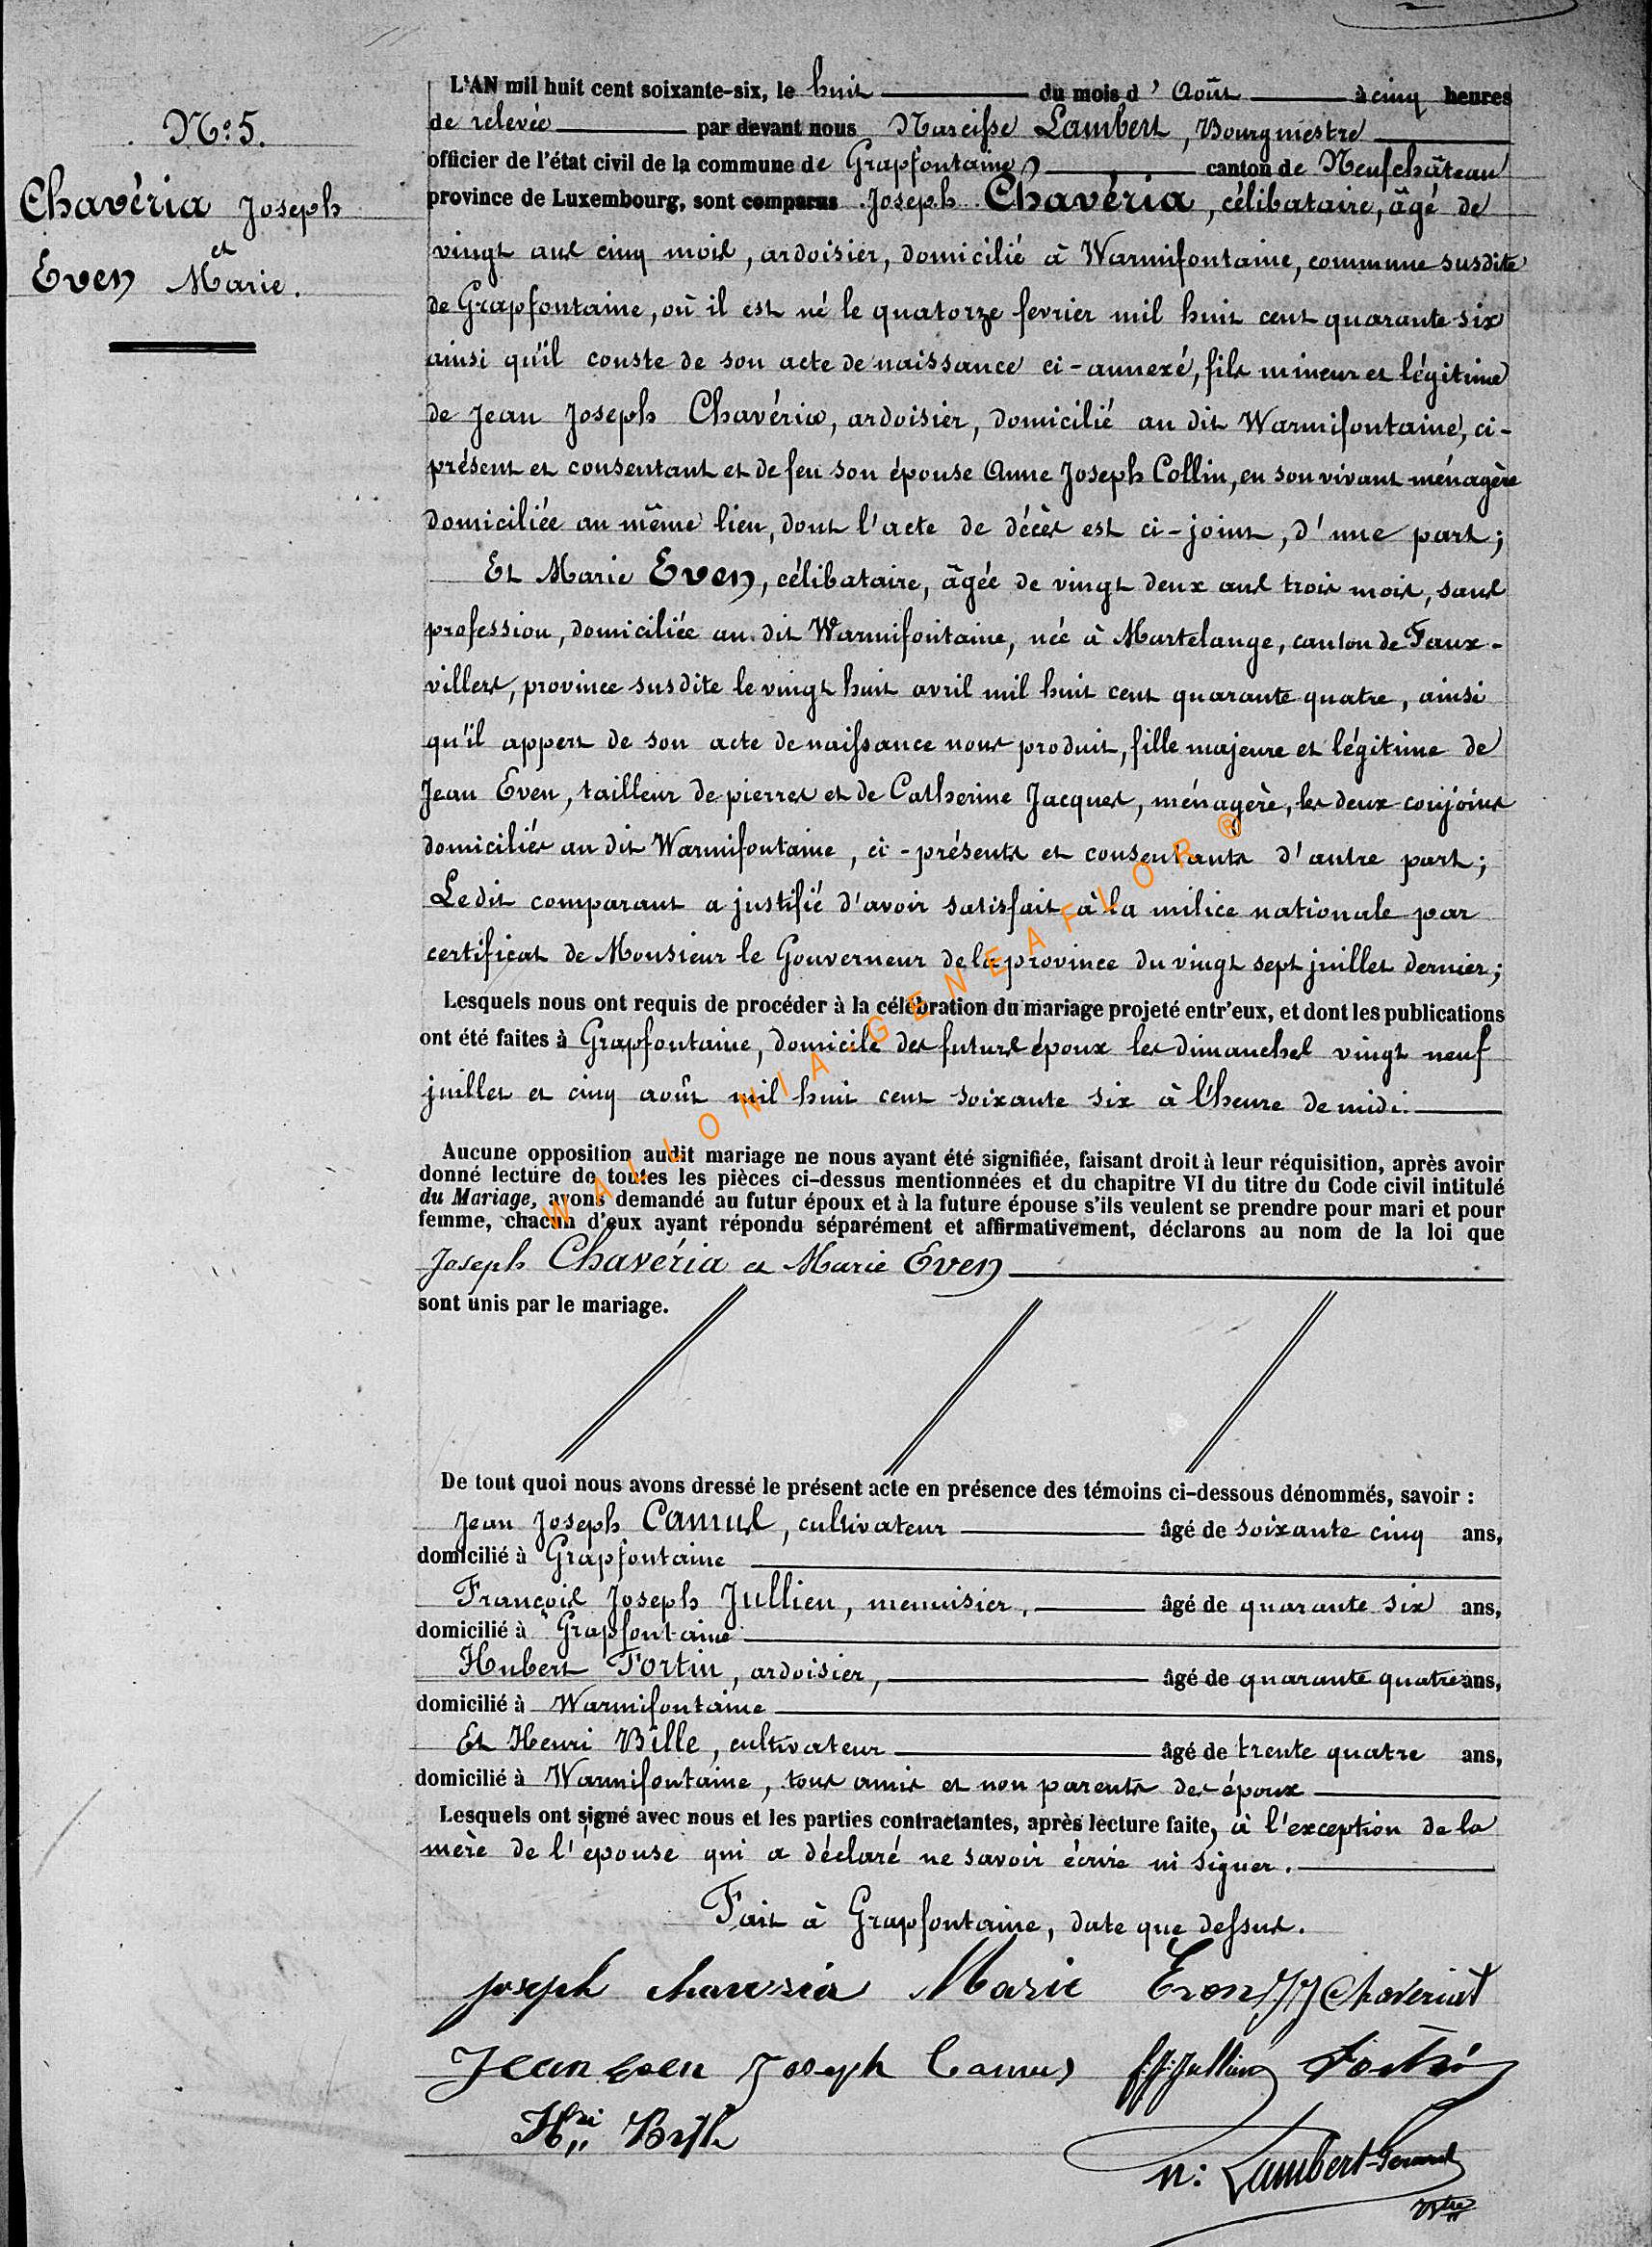 N.º 5.
Chavéria Joseph
et
Even Marie.
L'AN mil huit cent soixante-six, le huit du mois d' Août à cinq heures
de relevée par devant nous Narcisse Lambert, Bourgmestre
officier de l'état civil de la commune de Grapfontaine canton de Neufchâteau
province de Luxembourg, sont comparus Joseph Chavéria, célibataire, âgé de
vingt ans cinq mois, ardoisier, domicilié à Warmifontaine, commune susdite
de Grapfontaine, où il est né le quatorze fevrier mil huit cent quarante-six
ainsi qu'il conste de son acte de naissance ci-annexé, fils mineur et légitime
de Jean Joseph Chavéria, ardoisier, domicilié au dit Warmifontaine, ci-
présent et consentant et de feu son épouse Anne Joseph Collin, en son vivant ménagère
domiciliée au même lieu, dont l'acte de décès est ci-joint, d'une part;
Et Marie Even, célibataire, âgée de vingt deux ans trois mois, sans
profession, domiciliée au dit Warmifontaine, née à Martelange, canton de Faux-
villers, province susdite le vingt huit avril mil huit cent quarante quatre, ainsi
qu'il appert de son acte de naissance nous produit, fille majeure et légitime de
Jean Even, tailleur de pierres et de Catherine Jacques, ménagère, les deux conjoints
domiciliés au dit Warmifontaine, ci-présents et consentants d'autre part;
Le dit comparant a justifié d'avoir satisfait à la milice nationale par
certificat de Monsieur le Gouverneur de la province du vingt sept juillet dernier;
Lesquels nous ont requis de procéder à la célébration du mariage projeté entr'eux, et dont les publications
ont été faites à Grapfontaine, domicile des futurs époux les dimanches vingt neuf
juillet et cinq août mil huit cent soixante six à l'heure de midi.
Aucune opposition audit mariage ne nous ayant été signifiée, faisant droit à leur réquisition, après avoir
donné lecture de toutes les pièces ci-dessus mentionnées et du chapitre VI du titre du Code civil intitulé
du Mariage, avons demandé au futur époux et à la future épouse s'ils veulent se prendre pour mari et pour
femme, chacun d'eux ayant répondu séparément et affirmativement, déclarons au nom de la loi que
Joseph Chavéria et Marie Even
sont unis par le mariage.
De tout quoi nous avons dressé le présent acte en présence des témoins ci-dessous dénommés, savoir :
Jean Joseph Camus, cultivateur âgé de soixante cinq ans,
domicilié à Grapfontaine
François Joseph Jullien, menuisier, âgé de quarante six ans,
domicilié à Grapfontaine
Hubert Fortin, ardoisier, âgé de quarante quatre ans,
domicilié à Warmifontaine
Et Henri Bille, cultivateur âgé de trente quatre ans,
domicilié à Warmifontaine, tous amis et non parents des époux
Lesquels ont signé avec nous et les parties contractantes, après lecture faite, à l'exception de la
mère de l'épouse qui a déclaré ne savoir écrire ni signer.
Fait à Grapfontaine, date que dessus.
joseph chaveria Marie Even JJ Chaveriat
Jean Even Joseph Camus f.j. Jullien Fortin
Hri Bille
N: Lambert
WALLONIA GENEAFLOR ®